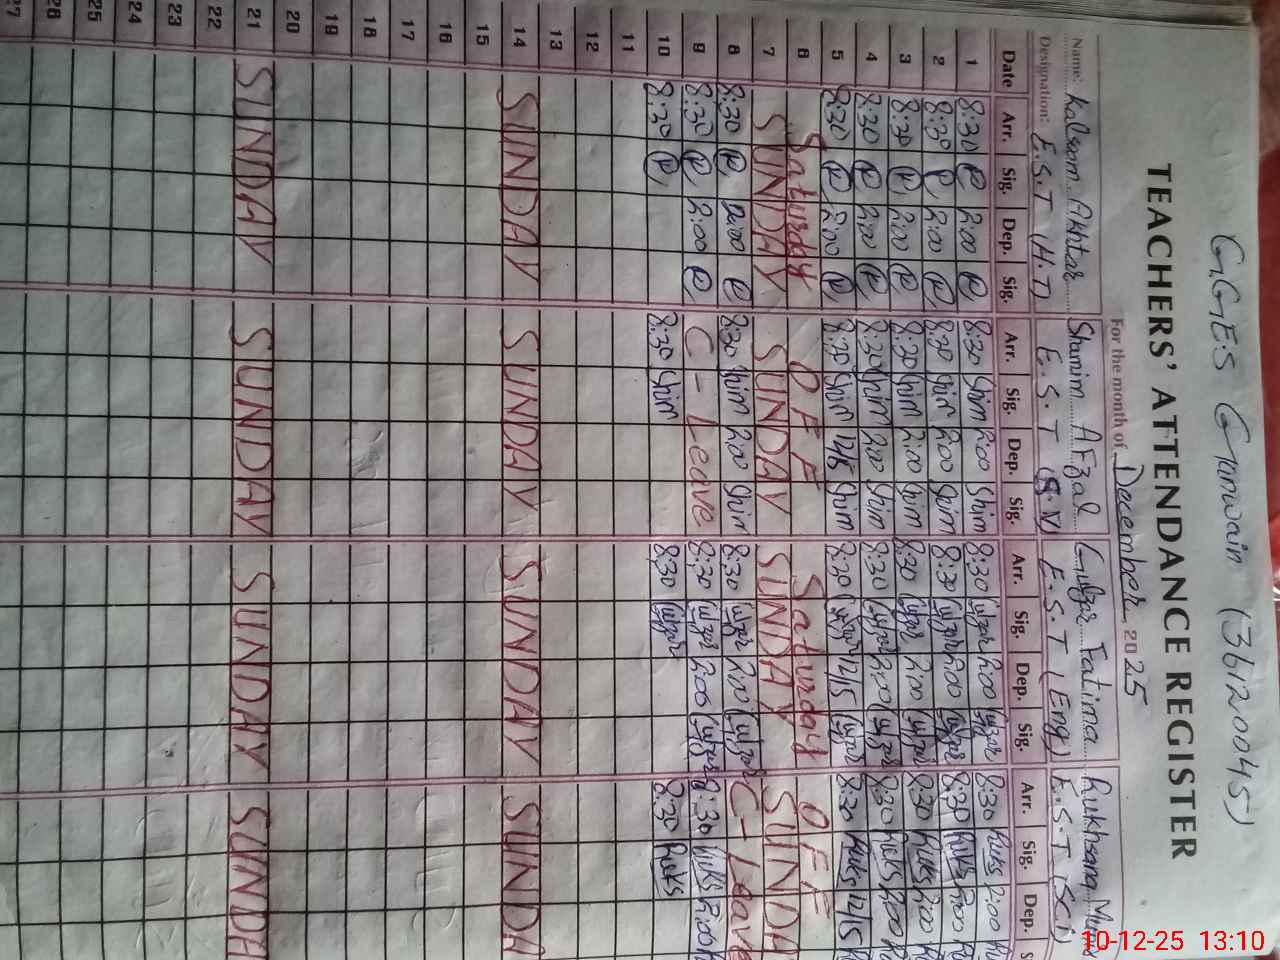 GGES Ganwain (36120045)
TEACHERS' ATTENDANCE REGISTER
For the month of December 2025
Name: Kalsom Akhtar Shamim Afzal Gulzar Fatima Rukhsana
Designation: E.S.T (H.T) E.S.T (S.V) E.S.T (Eng) E.S.T (Sci)
Date Arr. Sig. Dep. Sig. Arr. Sig. Dep. Sig. Arr. Sig. Dep. Sig. Arr. Sig. Dep. S
1 8:30 2:00 8:30 Shim 2:00 Shim 8:30 Gulzar 2:00 Gulzar 8:30 Ruks 2:00
2 8:30 2:00 8:30 Shim 2:00 Shim 8:30 Gulzar 2:00 Gulzar 8:30 Ruks 2:00
3 8:30 2:00 8:30 Shim 2:00 Shim 8:30 Gulzar 2:00 Gulzar 8:30 Ruks 2:00
4 8:30 2:00 8:30 Shim 2:00 Shim 8:30 Gulzar 2:00 Gulzar 8:30 Ruks 2:00
5 8:30 2:00 8:30 Shim 12/15 Shim 8:30 Gulzar 12/15 Gulzar 8:30 Ruks 12/15
6 Saturday OFF Saturday OFF
7 SUNDAY SUNDAY SUNDAY SUNDA
8 8:30 2:00 8:30 Shim 2:00 Shim 8:30 Gulzar 2:00 Gulzar C-Leave
9 8:30 2:00 C-Leave 8:30 Gulzar 2:00 Gulzar 8:30 Ruks 2:00
10 8:30 8:30 Shim 8:30 Gulzar 8:30 Ruks
11
12
13
14 SUNDAY SUNDAY SUNDAY SUNDA
15
16
17
18
19
20
21 SUNDAY SUNDAY SUNDAY SUNDA
22
23
24
25
26
27
10-12-25 13:10